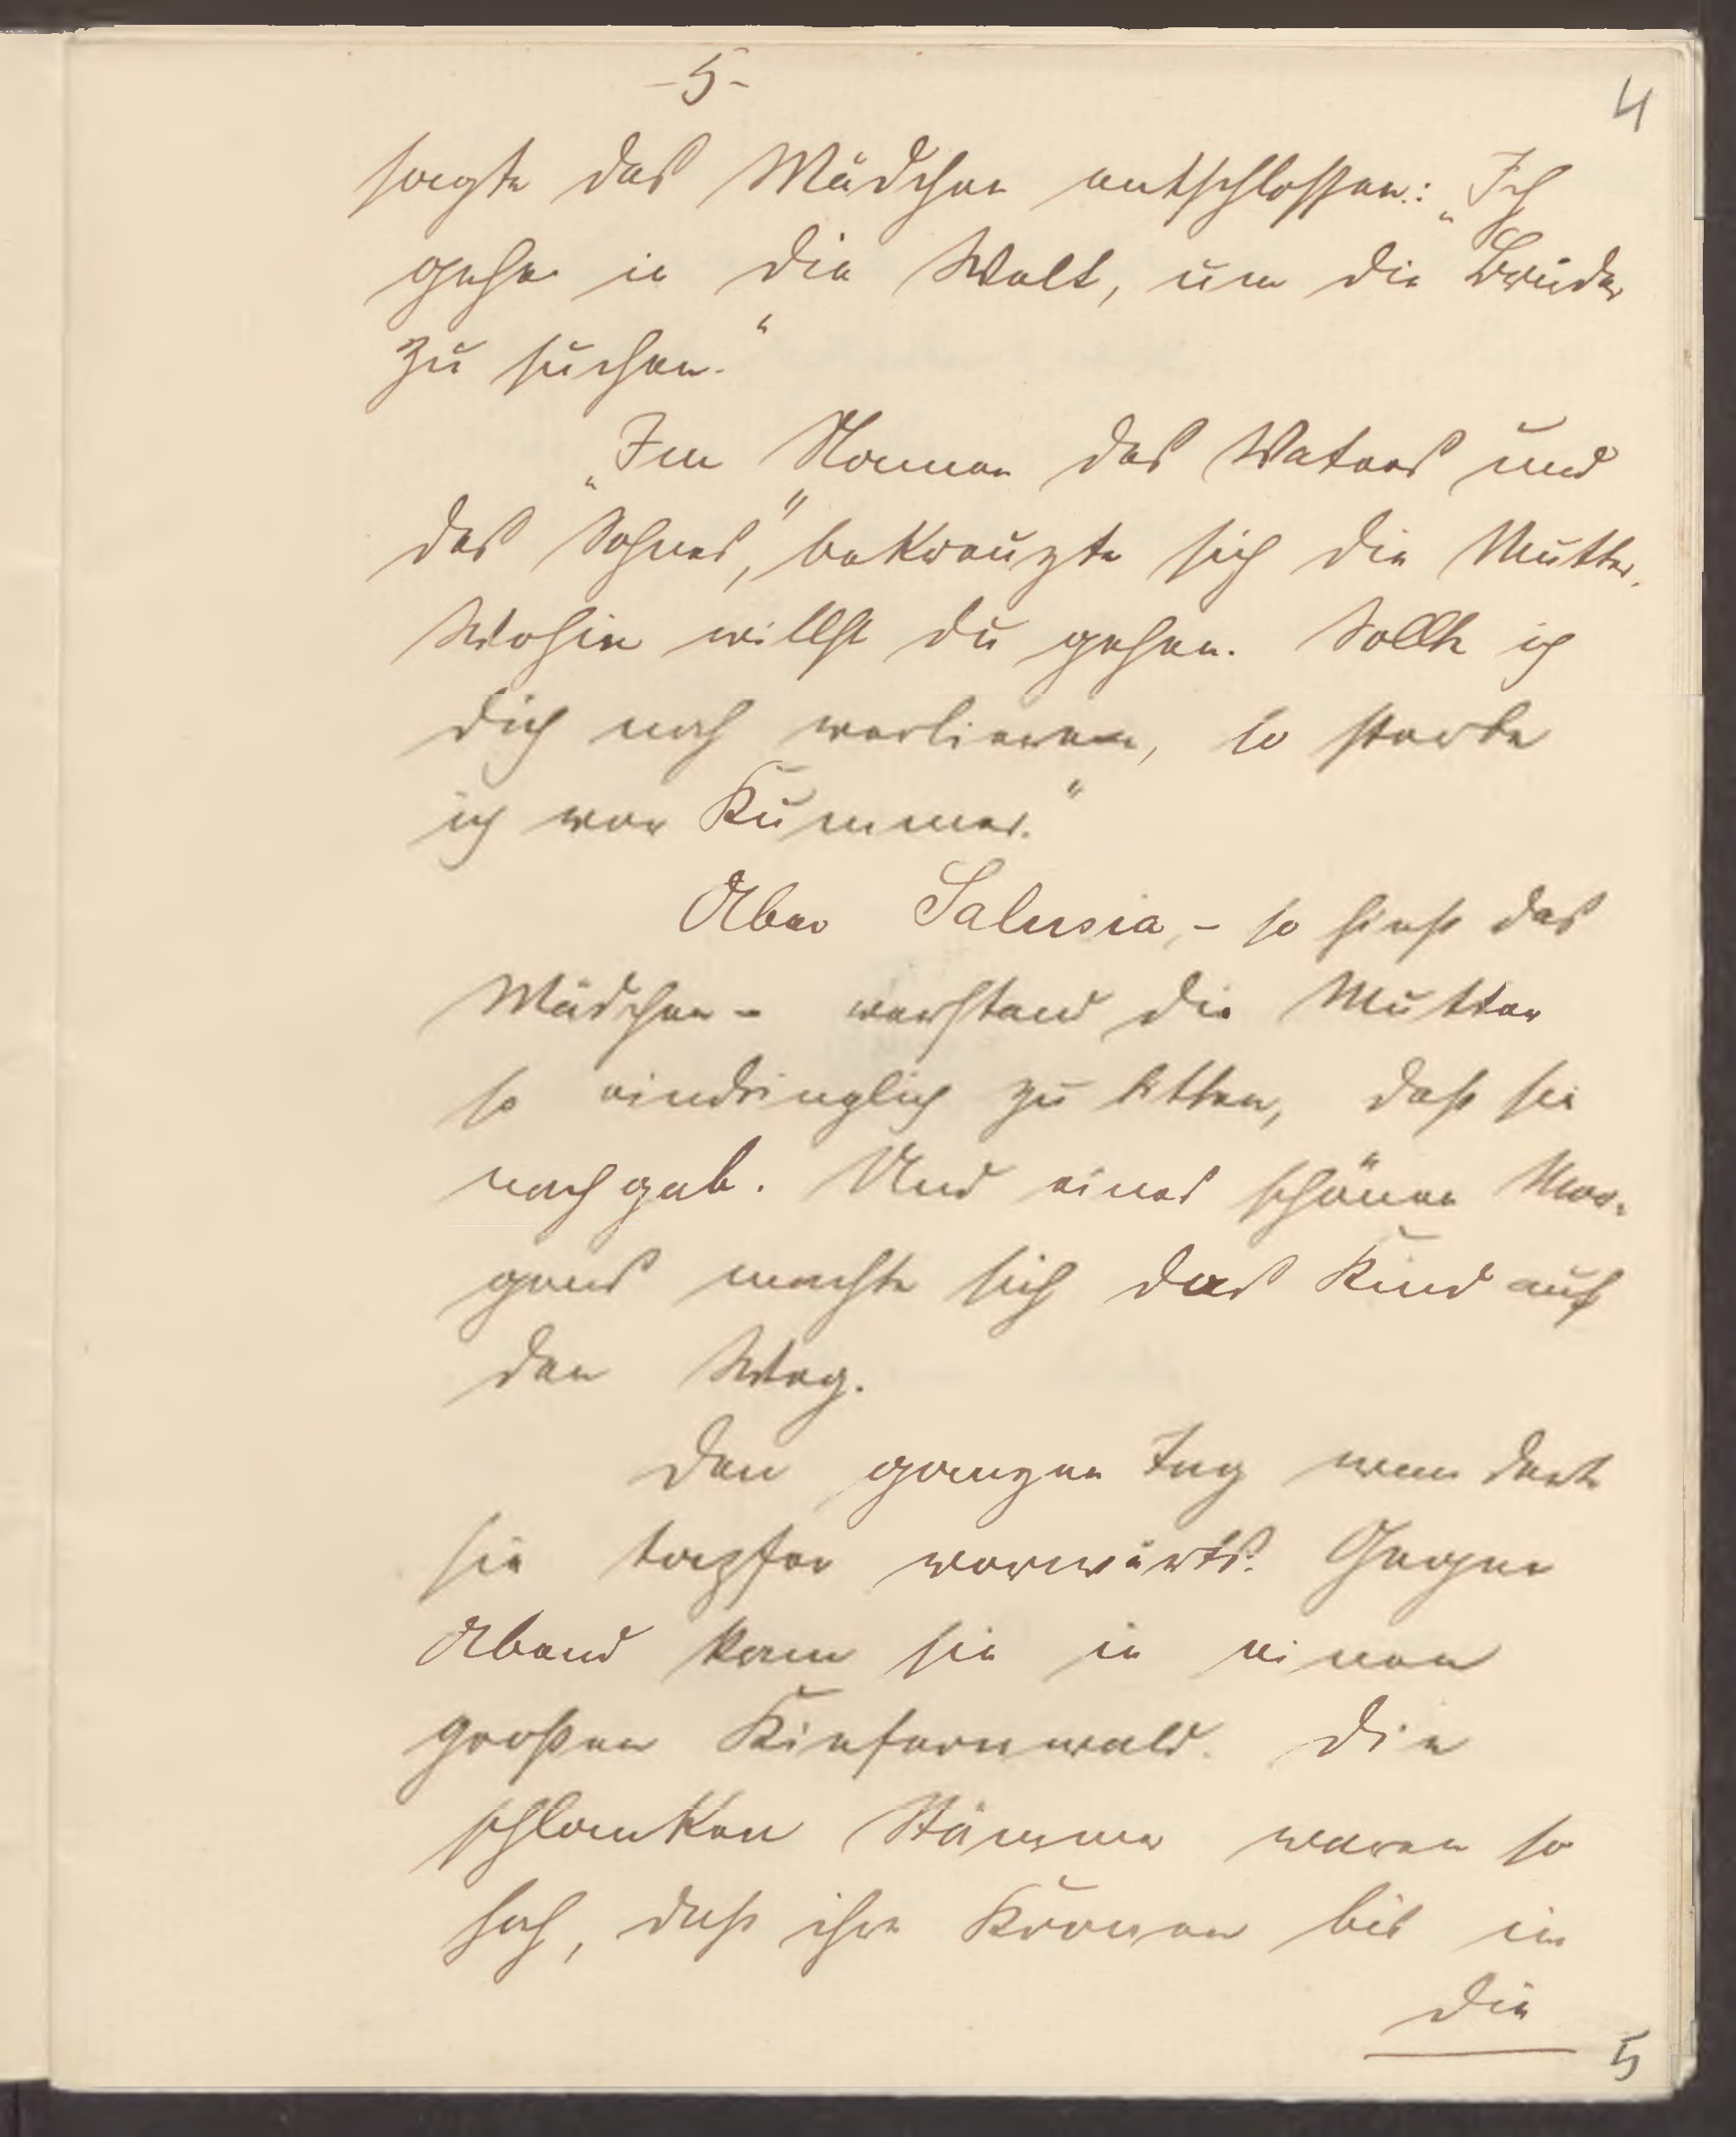 -5-
4
sagte das Mädchen entschlossen: „Ich
gehe in die Welt, um die Brüder
zu suchen.“
„Im Namen des Vaters und
des Sohnes,“ bekreuzte sich die Mutter.
Wohin willst du gehen. Sollte ich
dich noch verlieren, so sterbe
ich vor Kummer.“
Aber Salusia, - so hieß das
Mädchen - verstand die Mutter
so eindringlich zu bitten, daß sie
nachgab. Und eines schönen Mor-
gens machte sich das Kind auf
den Weg.
Den ganzen Tag wanderte
sie tapfer vorwärts. Gegen
Abend kam sie in einen
großen Kiefernwald. Die
schlanken Stämme waren so
hoch, daß ihre Kronen bis in
die
5